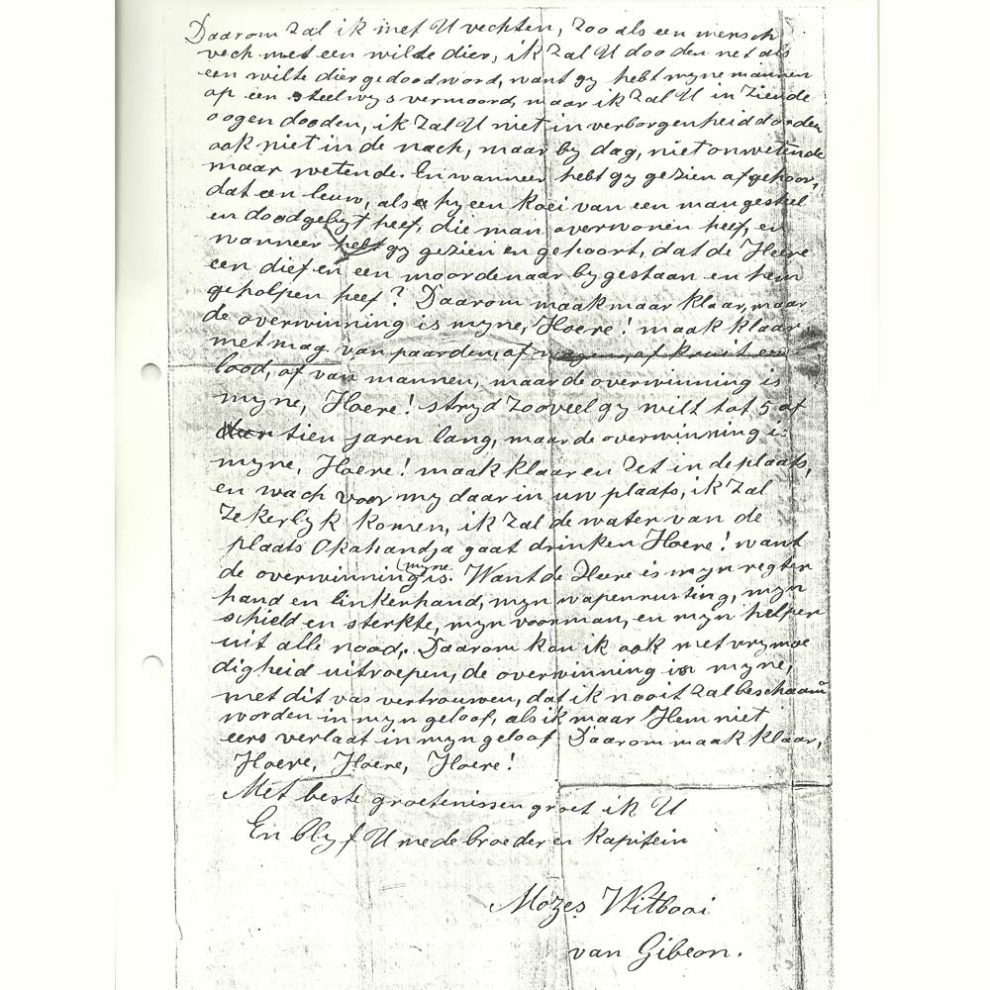 Daarom zal ik met U vechten, zoo als een mensch
vech met een wilde dier, ik zal U dooden net als
een wilte dier gedood word, want gy hebt myne mannen
op een steelwys vermoord, maar ik zal U in ziende
oogen dooden, ik zal U niet in verborgenheid dooden
ook niet in de nach, maar by dag, niet onwetende
maar wetende. En wanneer hebt gy gezien af gehoor,
dat een leuw, als hy een koei van een man gesteel
en doodgebyt heef, die man overwonen heef, en
wanneer hebt gy gezien en gehoort, dat de Heere
een dief en een moordenaar bygestaan en hem
geholpen heef? Daarom maak maar klaar, maar
de overwinning is myne, Hoere! maak klaar
met mag van paarden, af wagen, af kruit en
lood, af van mannen, maar de overwinning is
myne, Hoere! stryd zooveel gy wilt tot 5 af
tien jaren lang, maar de overwinning is
myne, Hoere! maak klaar en zet in de plaats,
en wach voor my daar in uw plaats, ik zal
zekerlyk komen, ik zal de water van de
plaats Okahandja gaat drinken Hoere! want
de overwinning is myne. Want de Heere is myn regter
hand en linkerhand, myn wapenrusting, myn
schield en sterkte, myn voorman, en myn helper
uit alle nood. Daarom kan ik ook met vrymoe
digheid uitroepen, de overwinning is myne,
met dit vas vertrouwen, dat ik nooit zal beschaam
worden in myn geloof, als ik maar Hem niet
eers verlaat in myn geloof Daarom maak klaar,
Hoere, Hoere, Hoere!
Met beste groetenissen groet ik U
En blyf U medebroeder en kapitein
Mozes Witbooi
van Gibeon.